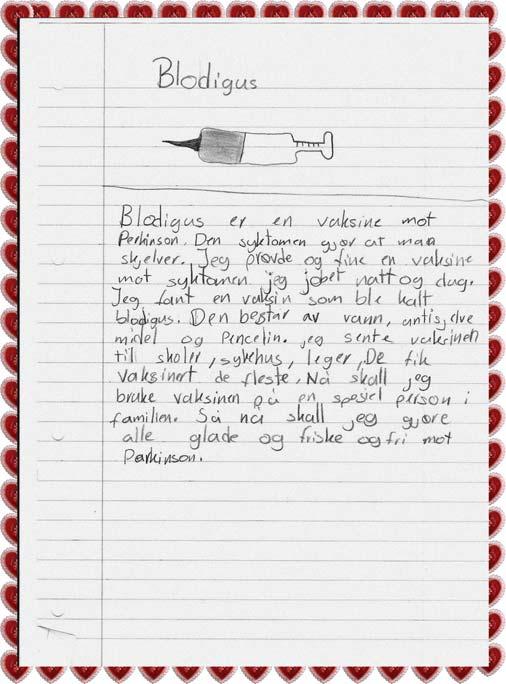 Blodigus
Blodigus er en vaksine mot
Perkinson. Den syktomen gjør at man
skjelver. Jeg prøvde og fine en vaksine
mot syktomen jeg jobet natt og dag.
Jeg fant en vaksin som ble kalt
blodigus. Den består av vann, antisydve
midel og Pencelin. jeg sente vaksinen
till skoler, sykehus, leger, De fik
vaksinert de fleste. Nå skall jeg
bruke vaksinen på en spesjel person i
familien. Så nå skall jeg gjøre
alle glade og friske og fri mot
Parkinson.